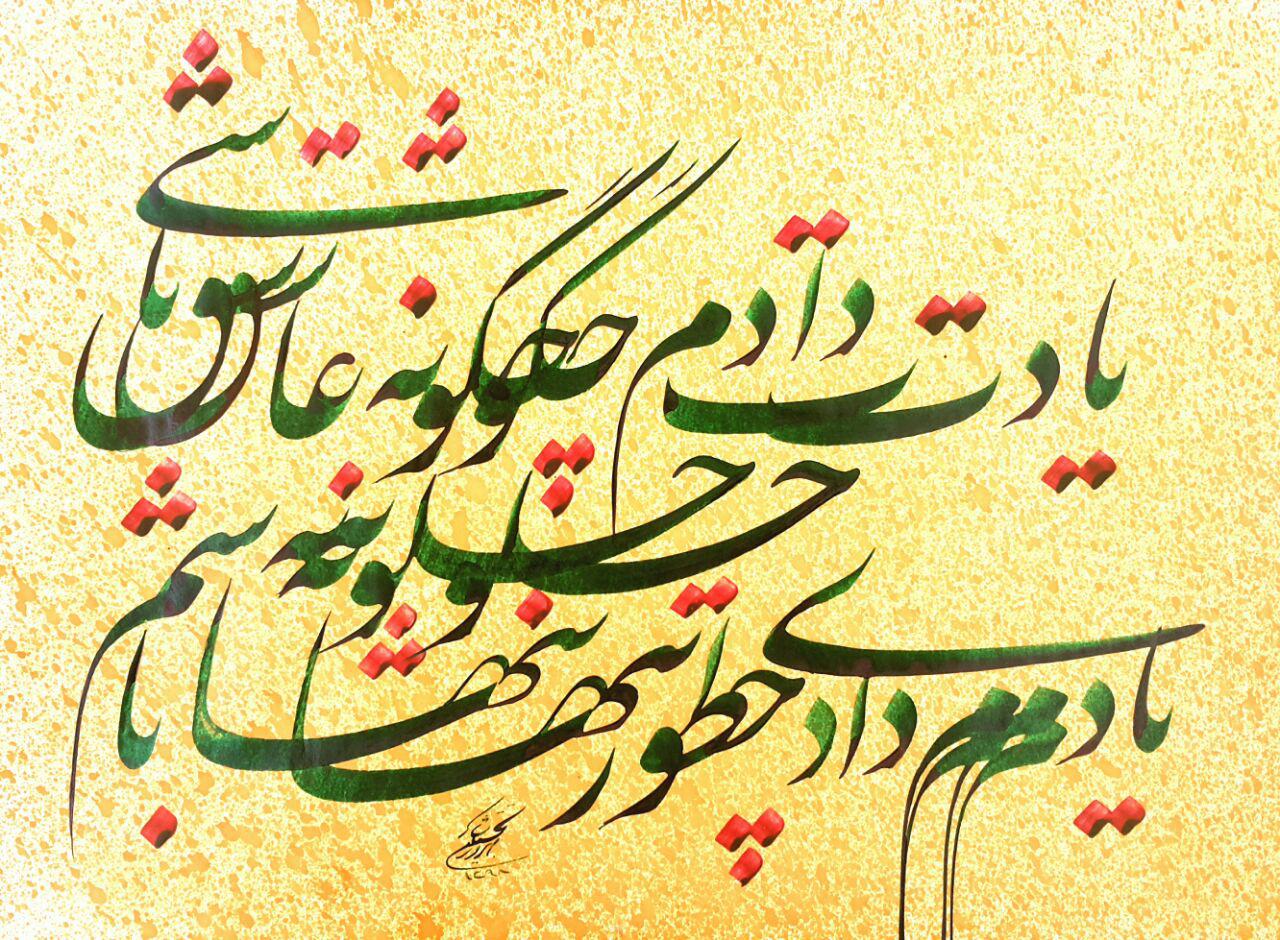 یادت دادم چگونه عاشق باشی
یادم دادی چطور تنها باشم
۱۳۹۸